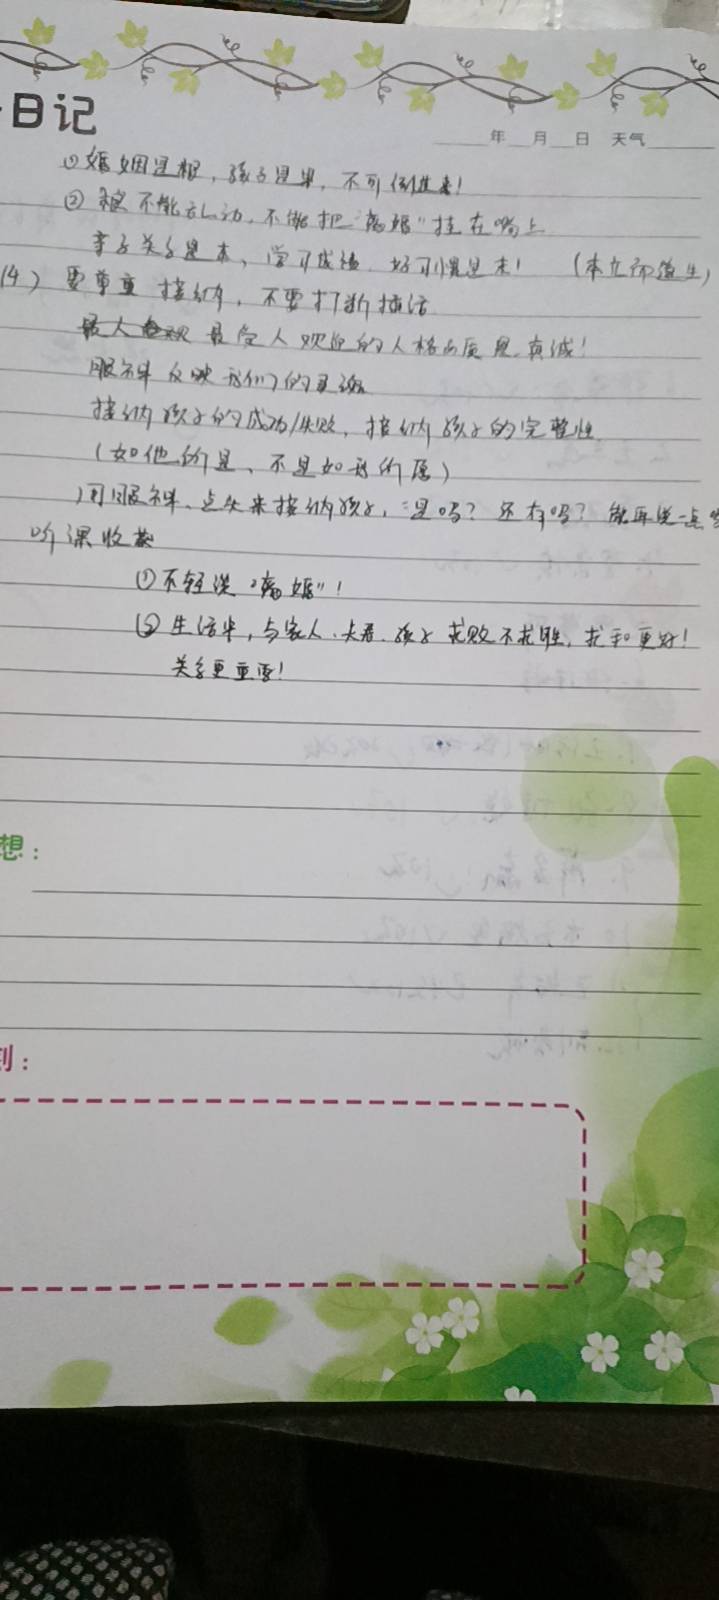 日记
年 月 日 天气
①婚姻是根,孩子是果,不可倒过来!
②根不能乱动,不能把“离婚”挂在嘴上
亲子关系是本,学习成绩、好习惯是末! (本立而道生)
(4) 要尊重 接纳,不要打断插话
最受人欢迎的人格品质是真诚!
眼神反映我们的
接纳孩子的成功/失败,接纳孩子的完整性
(如他所是、不是如我所愿)
用眼神、点头来接纳孩子,是吗?还有吗?能再说一点
听课收获
①不轻说“离婚”!
②生活中,与家人、夫君、孩子 求败不求胜,求和更好!
关系更重要!
想:
刻: